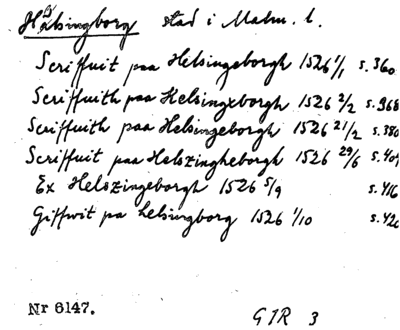 Hälsingborg stad i Malm. l.
Scriffuit paa Helsingeborgh 1526 1/1 s. 360
Scriffuith paa Helsingxborgh 1526 2/2 s. 368
Scriffuith paa Helsingeborgh 1526 21/2 s. 380
Scriffuit paa Helszingheborgh 1526 29/6 s. 404
Ex Helszingeborgh 1526 5/9 s. 416
Giffwit pa helsingborg 1526 1/10 s. 420
Nr 6147. G I R 3